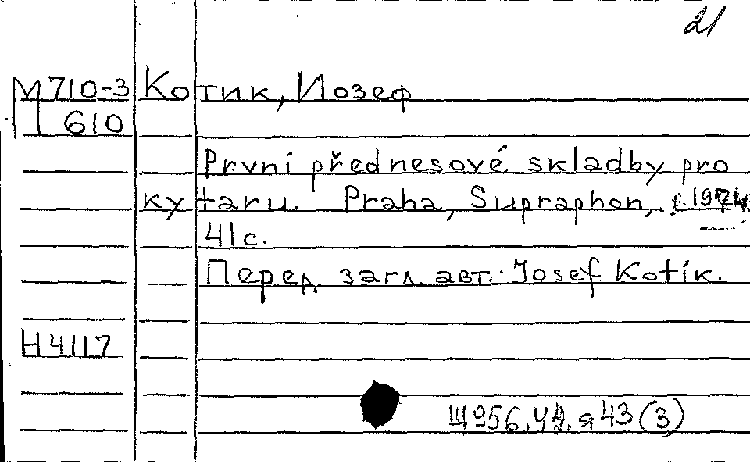 21
М710-3 Котик, Йозеф
610
První přednesové skladby pro
kytaru. Praha, Supraphon, 1974
41 с.
Перед загл. авт. Josef Kotík.
Н4117
Щ956.4Д.я43(3)